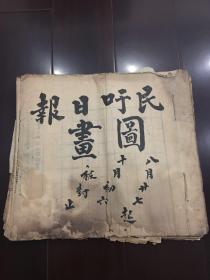 民吁日報
圖畫
八月廿七起
十月初六
被封
止